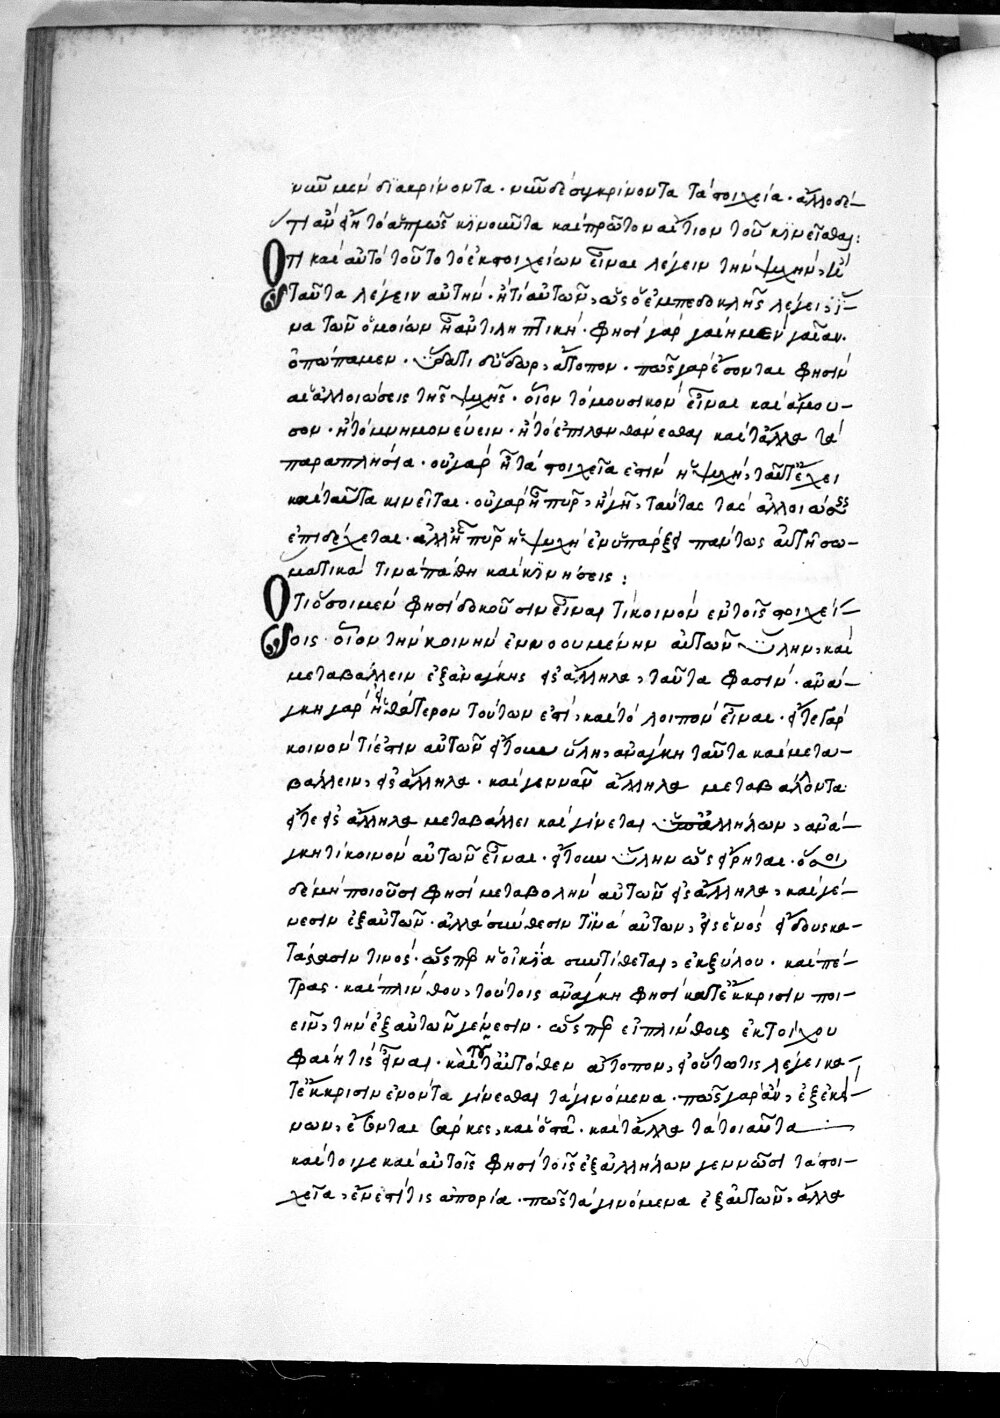 νῦν μὲν διακρίνοντα. νῦν δὲ συγκρίνοντα τὰ στοιχεῖα. ἄλλο δέ
τι ἂν εἴη τὸ ἁπλῶς κινοῦντα καὶ πρῶτον αἴτιον τοῦ κινεῖσθαι:
Ὅτι καὶ αὐτὸ τοῦτο τὸ ἐκ στοιχείων εἶναι λέγειν τὴν ψυχήν, ἢ
ταῦτα λέγειν αὐτήν. ἤ τι αὐτῶν, ὡς ὁ ἐμπεδοκλῆς λέγει, ἵ-
να τῶν ὁμοίων ᾖ ἀντιληπτική. φησὶ γὰρ γαίῃ μὲν γαῖαν
ὀπώπαμεν. ὕδατι δ' ὕδωρ, ἄτοπον. πῶς γὰρ ἔσονται φησὶν
αἱ ἀλλοιώσεις τῆς ψυχῆς. οἷον τὸ μουσικὸν εἶναι καὶ ἄμου-
σον. ἢ τὸ μνημονεύειν. ἢ τὸ ἐπιλανθάνεσθαι καὶ τἄλλα τὰ
παραπλήσια. οὐ γὰρ ᾗ τὰ στοιχεῖα ἐστὶν ἡ ψυχή, ταῦτ' ἔχει
καὶ ταῦτα κινεῖται. οὐ γὰρ ᾗ πῦρ, ἢ γῆ, ταύτας τὰς ἀλλοιώσεις
ἐπιδέχεται. ἀλλ' ᾗ πῦρ ἡ ψυχὴ ἐνυπάρξει πάντως αὐτῇ σω-
ματικά τινα πάθη καὶ κινήσεις:
Ὅτι ὅσοι μὲν φησὶ δοκοῦσιν εἶναι τι κοινὸν ἐν τοῖς στοιχεί-
οις. οἷον τὴν κοινὴν ἐννοουμένην αὐτῶν ὕλην, καὶ
μεταβάλλειν ἐξ ἀνάγκης εἰς ἄλληλα, ταῦτα φασίν. ἀνάγ-
κη γὰρ εἰ θάτερον τούτων ἐστί, καὶ τὸ λοιπὸν εἶναι. εἴτε γὰρ
κοινόν τι ἐστὶν αὐτῶν εἴτουν ὕλη, ἀνάγκη ταῦτα καὶ μετα-
βάλλειν, εἰς ἄλληλα. καὶ γεννᾶν ἄλληλα μεταβάλλοντα
εἴτε εἰς ἄλληλα μεταβάλλει καὶ γίνεται ἀλλήλων, ἀνάγ-
κη τι κοινὸν αὐτῶν εἶναι. εἴτουν ὕλην ὡς εἴρηται. ὅσοι
δὲ μὴ ποιοῦσι φησὶ μεταβολὴν αὐτῶν εἰς ἄλληλα, καὶ γέ-
νεσιν ἐξ αὐτῶν. ἀλλὰ σύνθεσιν τινὰ αὐτῶν, εἰς ἑνὸς εἴδους κα-
τάστασιν τινός. ὥσπερ ἡ οἰκία συντίθεται, ἐκ ξύλου. καὶ πέ-
τρας. καὶ πλίνθου, τούτοις ἀνάγκη φησὶ κατ' ἔκκρισιν ποι-
εῖν, τὴν ἐξ αὐτῶν γένεσιν. ὥσπερ εἰ πλίνθους ἐκ τοίχου
φαίη τις εἶναι. καὶ τοῦτ' αὐτόθεν ἄτοπον, εἰ οὕτω τις λέγει κα-
τ' ἔκκρισιν ἐνόντα γίνεσθαι τὰ γινόμενα. πῶς γὰρ ἂν, ἐξ ἐκεί-
νων, ἔσονται σάρκες, καὶ ὀστᾶ. καὶ τἄλλα τὰ τοιαῦτα
καίτοιγε καὶ αὐτοῖς φησὶ τοῖς ἐξ ἀλλήλων γεννῶσι τὰ στοι-
χεῖα, ἔνεστί τις ἀπορία. πῶς τὰ γινόμενα ἐξ αὐτῶν, ἄλλα